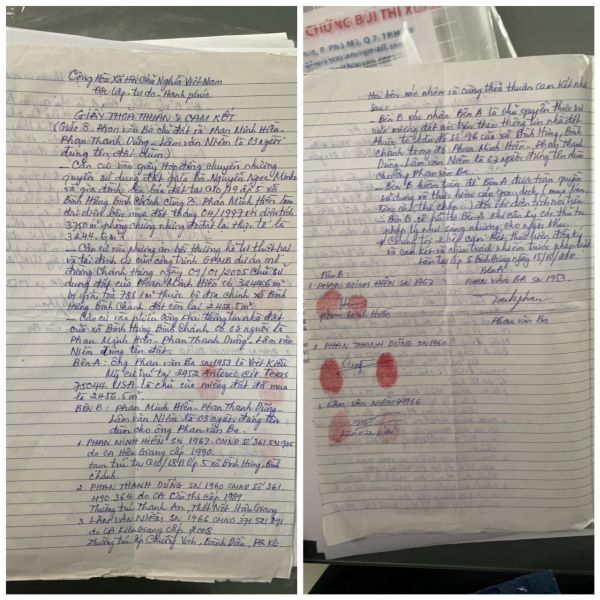 Cộng Hòa Xã Hội Chủ Nghĩa Việt Nam
Độc lập - Tự do - Hạnh phúc
GIẤY THỎA THUẬN & CAM KẾT
(Giữa ô. Phan Văn Ba chủ đất và Phan Minh Hiền -
Phan Thanh Dũng - Lâm Văn Niềm là 03 người
đứng tên đất dùm)
- Căn cứ vào giấy Hợp đồng chuyển nhượng
quyền sử dụng đất giữa bà Nguyễn Ngọc Minh
và gia đình bán đất tại G10/19 ấp 5 xã
Bình Hưng Bình Chánh cùng ô. Phan Minh Hiền làm
đại diện bên mua đất tháng 04/1997 với diện tích
3750m² nhưng đo đạt lại thực tế là
3244.6m²
- Căn cứ vào phương án bồi thường hỗ trợ thiệt hại
và tái định cư của công trình GPMB dự án mở
đường Chánh Hưng ngày 04/01/2005 chủ sử
dụng đất của Phan Minh Hiền có 3244.6m²
bị giải tỏa 788.1m² thuộc bộ địa chính xã Bình
Hưng Bình Chánh đất còn lại 2456.5m²
- Căn cứ vào phiếu cung cấp thông tin nhà đất
của xã Bình Hưng Bình Chánh có 03 người là
Phan Minh Hiền - Phan Thanh Dũng - Lâm Văn
Niềm đứng tên đất.
BÊN A: Ông Phan Văn Ba SN 1953 là Việt Kiều
Mỹ cư trú tại 2952 Anteres Cir. Texas
75044 USA là chủ của miếng đất đã mua
là 2456.5m²
BÊN B: Phan Minh Hiền - Phan Thanh Dũng -
Lâm Văn Niềm là 03 người đứng tên
dùm cho ông Phan Văn Ba.
1. PHAN MINH HIỀN SN 1967. CMND số
do CA Hậu Giang cấp 1990.
tạm trú tại G10/18B ấp 5 xã Bình Hưng, Bình
Chánh
2. PHAN THANH DŨNG SN 1960 CMND số 361.
490.364 do CA Cần Thơ cấp 1989
Thường trú Thạnh An, Thốt Nốt Hậu Giang
3. LÂM VĂN NIỀM SN 1966 CMND
do CA Kiên Giang cấp 2008
Thường trú ấp Vĩnh
CHỨNG BÙI THỊ XUÂN
P. Phú Mỹ, Q 7, TP.
Hai bên xác nhận và cùng thỏa thuận cam kết như
sau:
- Bên B xác nhận Bên A là chủ quyền thực sự
của miếng đất nói trên theo thông tin nhà đất
thuộc tờ bản đồ số 96 của xã Bình Hưng, Bình
Chánh trong đó Phan Minh Hiền - Phan Thanh
Dũng - Lâm Văn Niềm là 03 người đứng tên dùm
cho ông Phan Văn Ba.
- Bên B hoàn toàn để Bên A được toàn quyền
sử dụng và thực hiện các giao dịch (mua, bán
tặng cho, thế chấp...) đối với diện tích nói trên
- Bên B sẽ hỗ trợ Bên A khi cần ký các thủ tục
pháp lý như sang nhượng cho người khác.
* Chúng tôi 2 bên cam kết, thỏa thuận, đồng ký
và cam kết và chịu trách nhiệm trước pháp luật
Làm tại ấp 5 Bình Hưng ngày 15/10/2010.
Bên B:
Bên A:
1. PHAN MINH HIỀN SN 1967
PHAN VĂN BA SN 1953.
Phan Minh Hiền
Phan Văn Ba
2. PHAN THANH DŨNG SN 1960
3. LÂM VĂN NIỀM 1966